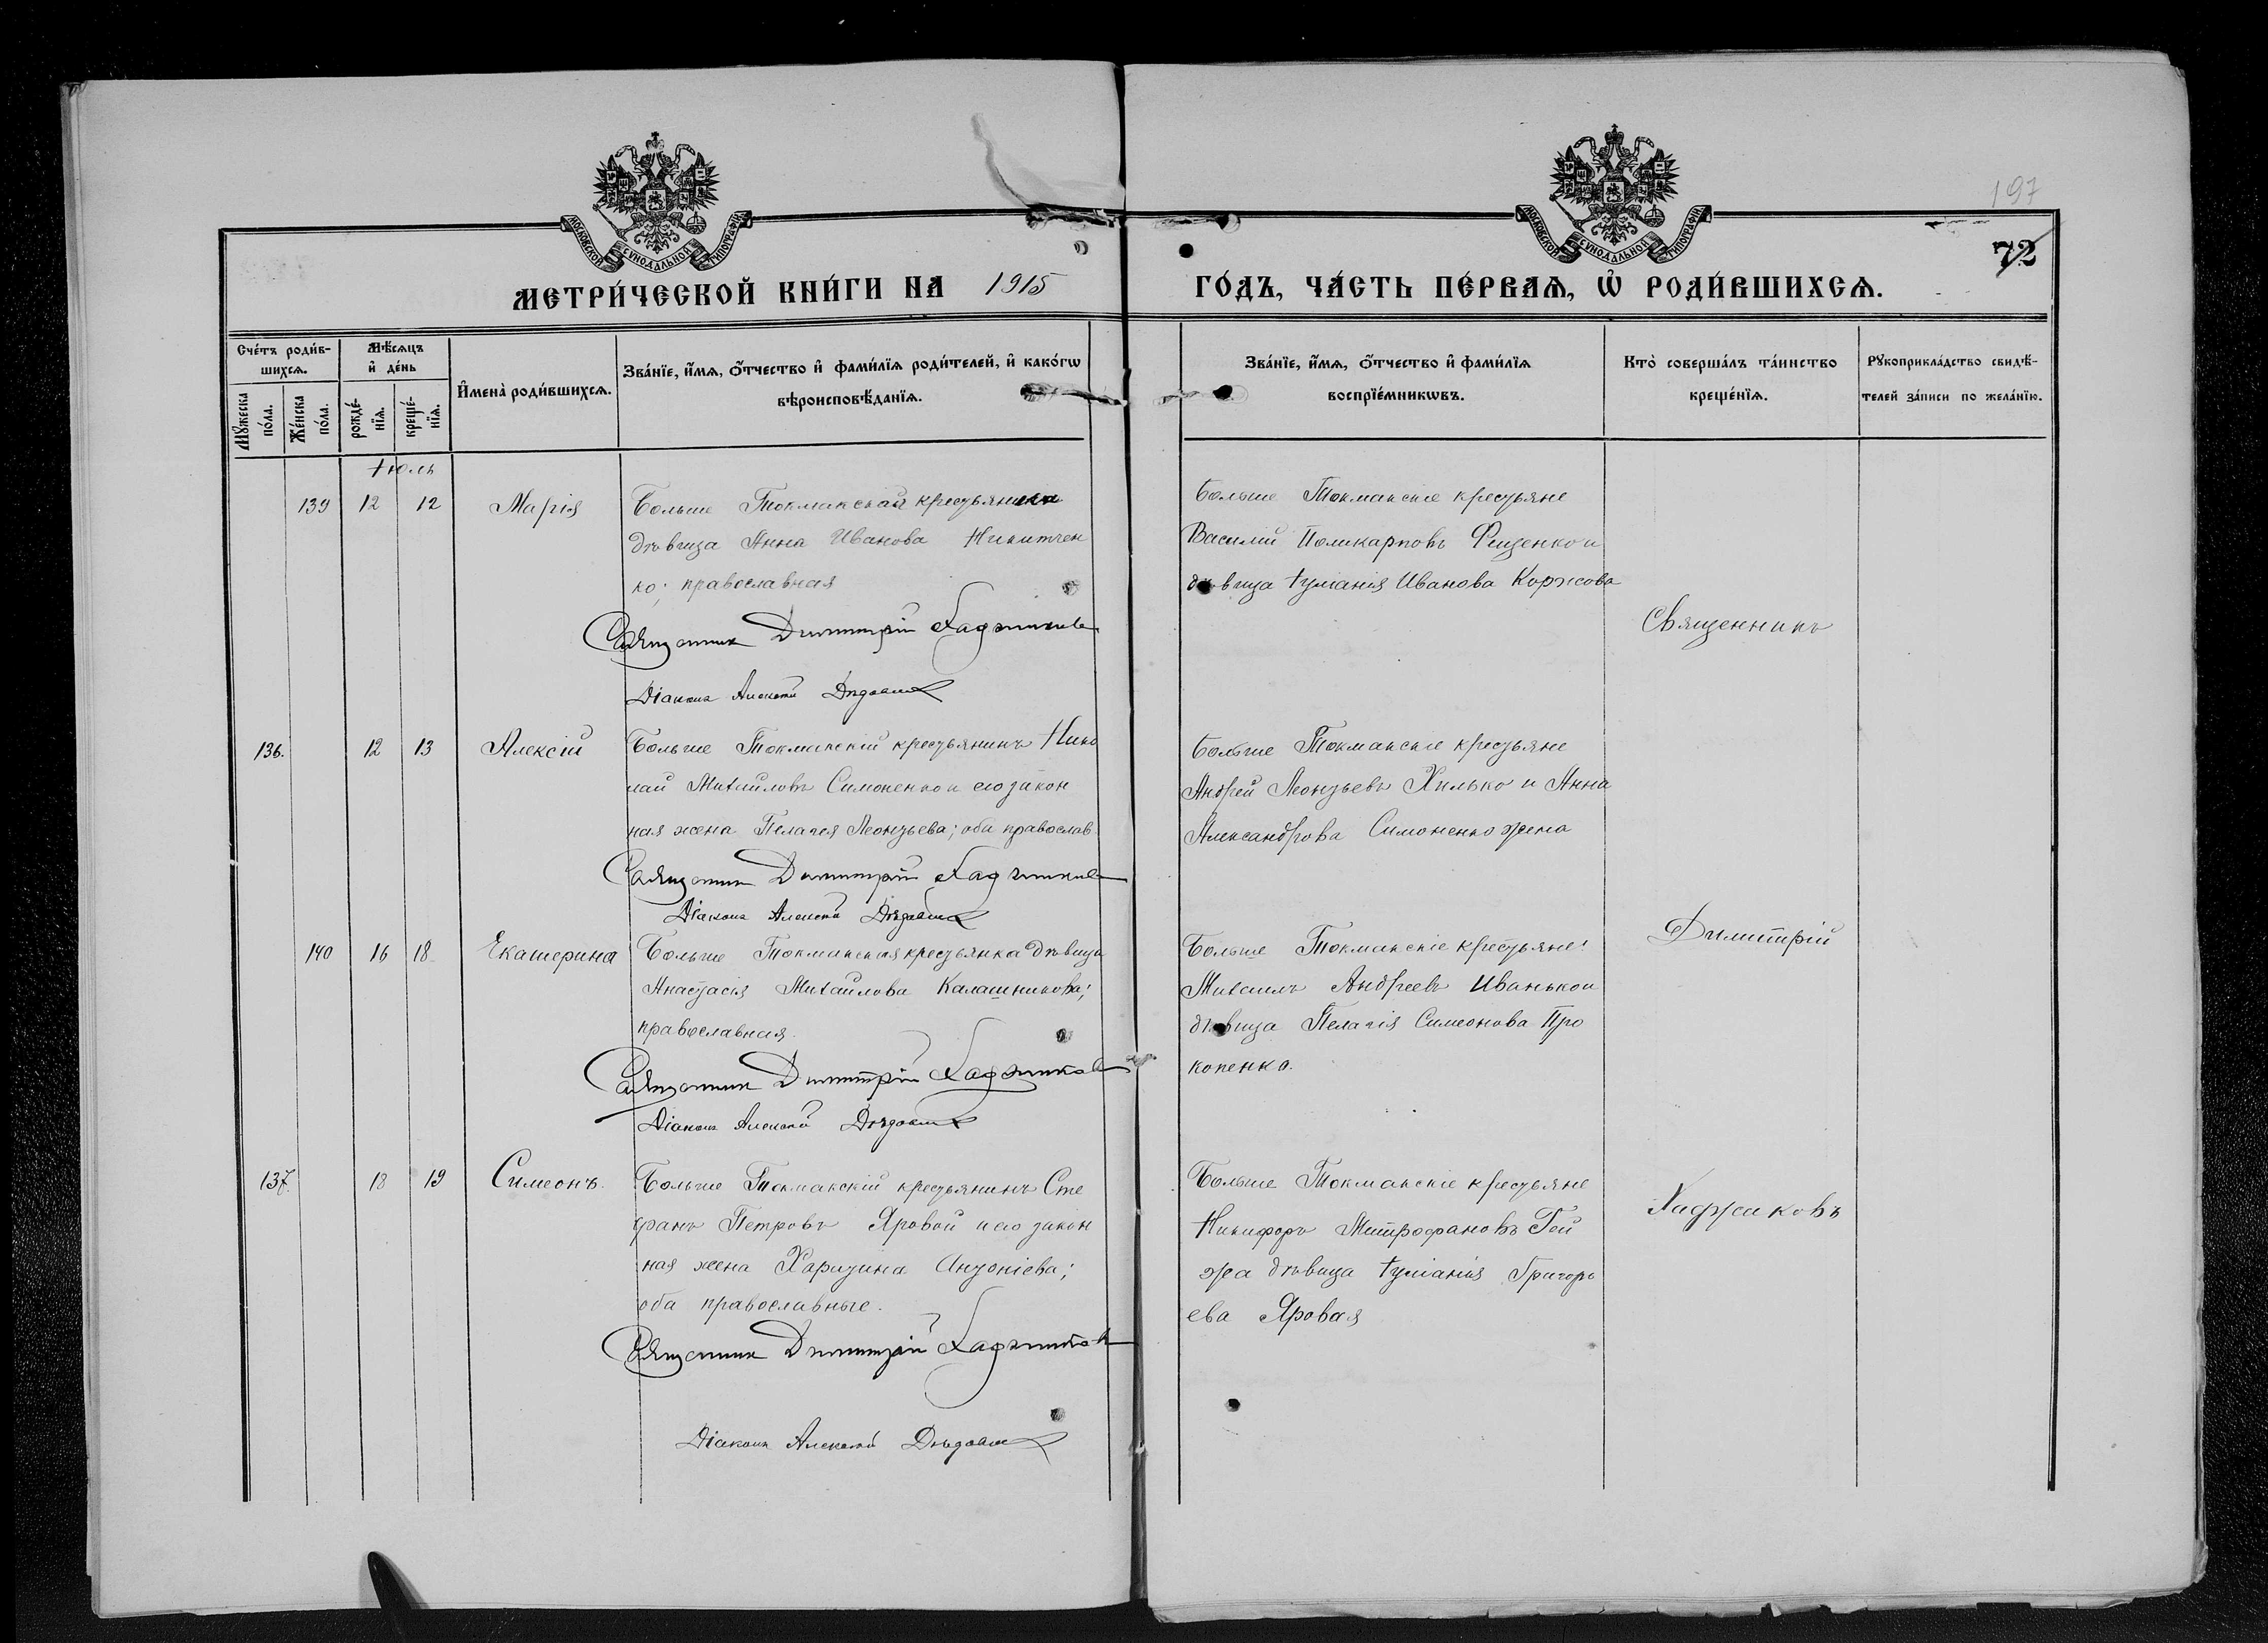 197
72
МОСКОВСКОЙ СѴНОДАЛЬНОЙ ТИПОГРАФІИ
МОСКОВСКОЙ СѴНОДАЛЬНОЙ ТИПОГРАФІИ
МЕТРИ́ЧЕСКОЙ КНИ́ГИ НА 1915 ГО́ДЪ, ЧА́СТЬ ПЕ́РВАѦ, Ѡ҆ РОДИ́ВШИХСѦ.
Сче́тъ роди́в-
шихсѧ.
Мꙋ́жеска
по́ла.
Же́нска
по́ла.
Мѣ́сѧцъ
и҆ де́нь
рожде́-
нїѧ.
креще́-
нїѧ.
И҆мена̀ роди́вшихсѧ.
Зва́нїе, и҆́мѧ, ѻ҆́тчество и҆ фами́лїѧ роди́телей, и҆ како́гѡ
вѣроисповѣ́данїѧ.
Зва́нїе, и҆́мѧ, ѻ҆́тчество и҆ фами́лїѧ
воспрїе́мникѡвъ.
Кто̀ соверша́лъ та́инство
креще́нїѧ.
Рꙋкоприкла́дство свидѣ́-
телей за́писи по жела́нїю.
Іюль
139 12 12 Марія
Больше Токмакская крестьянка
дѣвица Анна Иванова Никитчен
ко; православная
Священник Димитрій Хаджиков
Діаконъ Алексѣй
Больше Токмакскіе крестьяне
Василій Поликарповъ Фищенко и
дѣвица Іуліанія Иванова Коржова
Священникъ
136. 12 13 Алексій
Больше Токмакскій крестьянинъ Нико
лай Михайловъ Симоненко и его закон
ная жена Пелагея Леонтьева; оба православ.
Священник Димитрій Хаджиков
Діаконъ Алексѣй
Больше Токмакскіе крестьяне
Андрей Леонтьевъ Хилько и Анна
Александрова Симоненко жена
140 16 18 Екатерина
Больше Токмакская крестьянка дѣвица
Анастасія Михайлова Калашникова;
православная.
Священник Димитрій Хаджиков
Діаконъ Алексѣй
Больше Токмакскіе крестьяне:
Михаилъ Андреевъ Иванько и
дѣвица Пелагія Симеонова Про
копенко.
Димитрій
137. 18 19 Симеонъ.
Больше Токмакскій крестьянинъ Сте
фанъ Петровъ Яровой и его закон
ная жена Харитина Антоніева;
оба православные.
Священник Димитрій Хаджиков
Діаконъ Алексѣй
Больше Токмакскіе крестьяне
Никифоръ Митрофановъ Гей
жа дѣвица Іуліанія Григорь
ева Яровая
Хаджиковъ